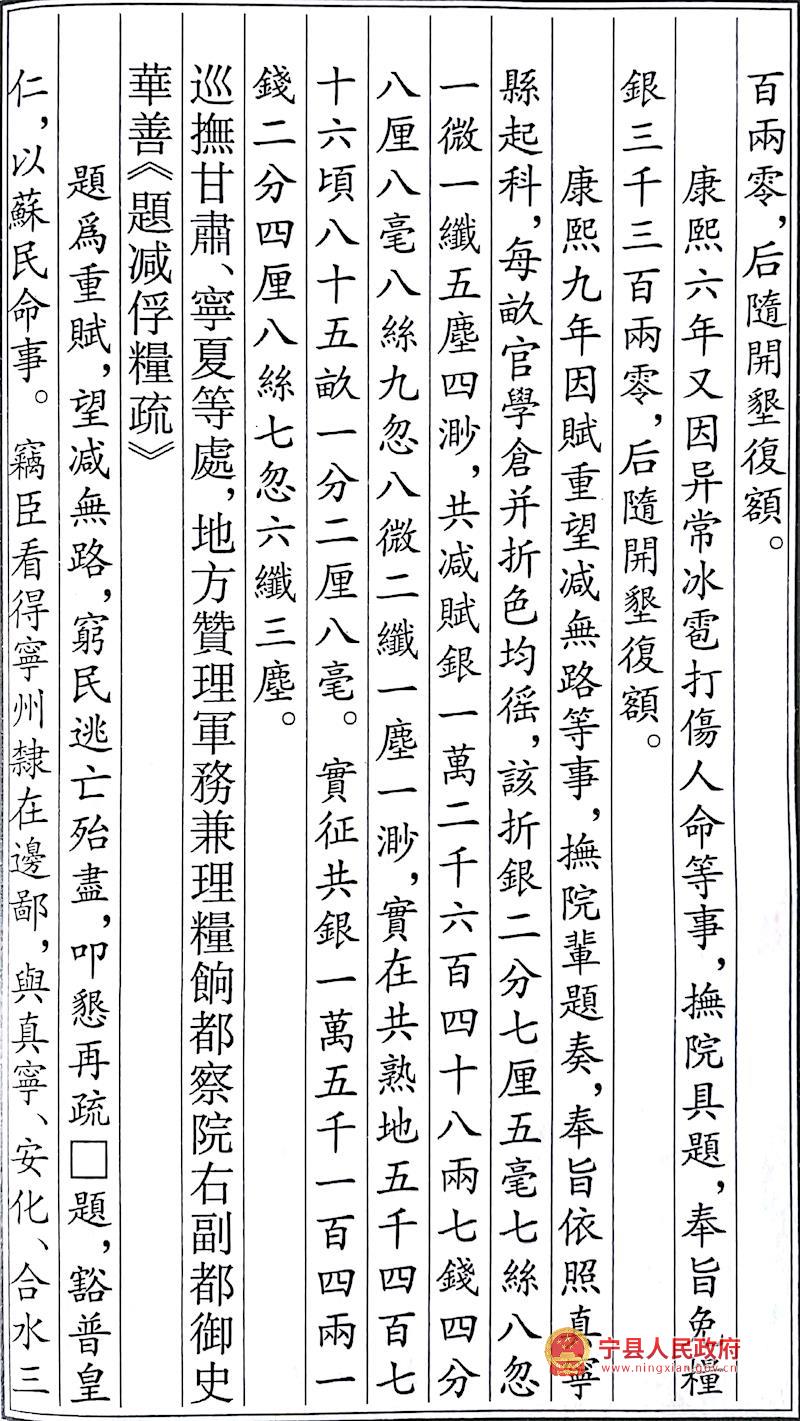 百兩零，后隨開墾復額。
康熙六年又因异常冰雹打傷人命等事，撫院具題，奉旨免糧
銀三千三百兩零，后隨開墾復額。
康熙九年因賦重望减無路等事，撫院輩題奏，奉旨依照真寧
縣起科，每畝官學倉并折色均徭，該折銀二分七厘五毫七絲八忽
一微一纖五塵四渺，共减賦銀一萬二千六百四十八兩七錢四分
八厘八毫八絲九忽八微二纖一塵一渺，實在共熟地五千四百七
十六頃八十五畝一分二厘八毫。實征共銀一萬五千一百四兩一
錢二分四厘八絲七忽六纖三塵。
巡撫甘肅、寧夏等處，地方贊理軍務兼理糧餉都察院右副都御史
華善《題减俘糧疏》
題爲重賦，望减無路，窮民逃亡殆盡，叩懇再疏□題，豁普皇
仁，以蘇民命事。竊臣看得寧州隸在邊鄙，與真寧、安化、合水三
宁县人民政府
www.ningxian.gov.cn